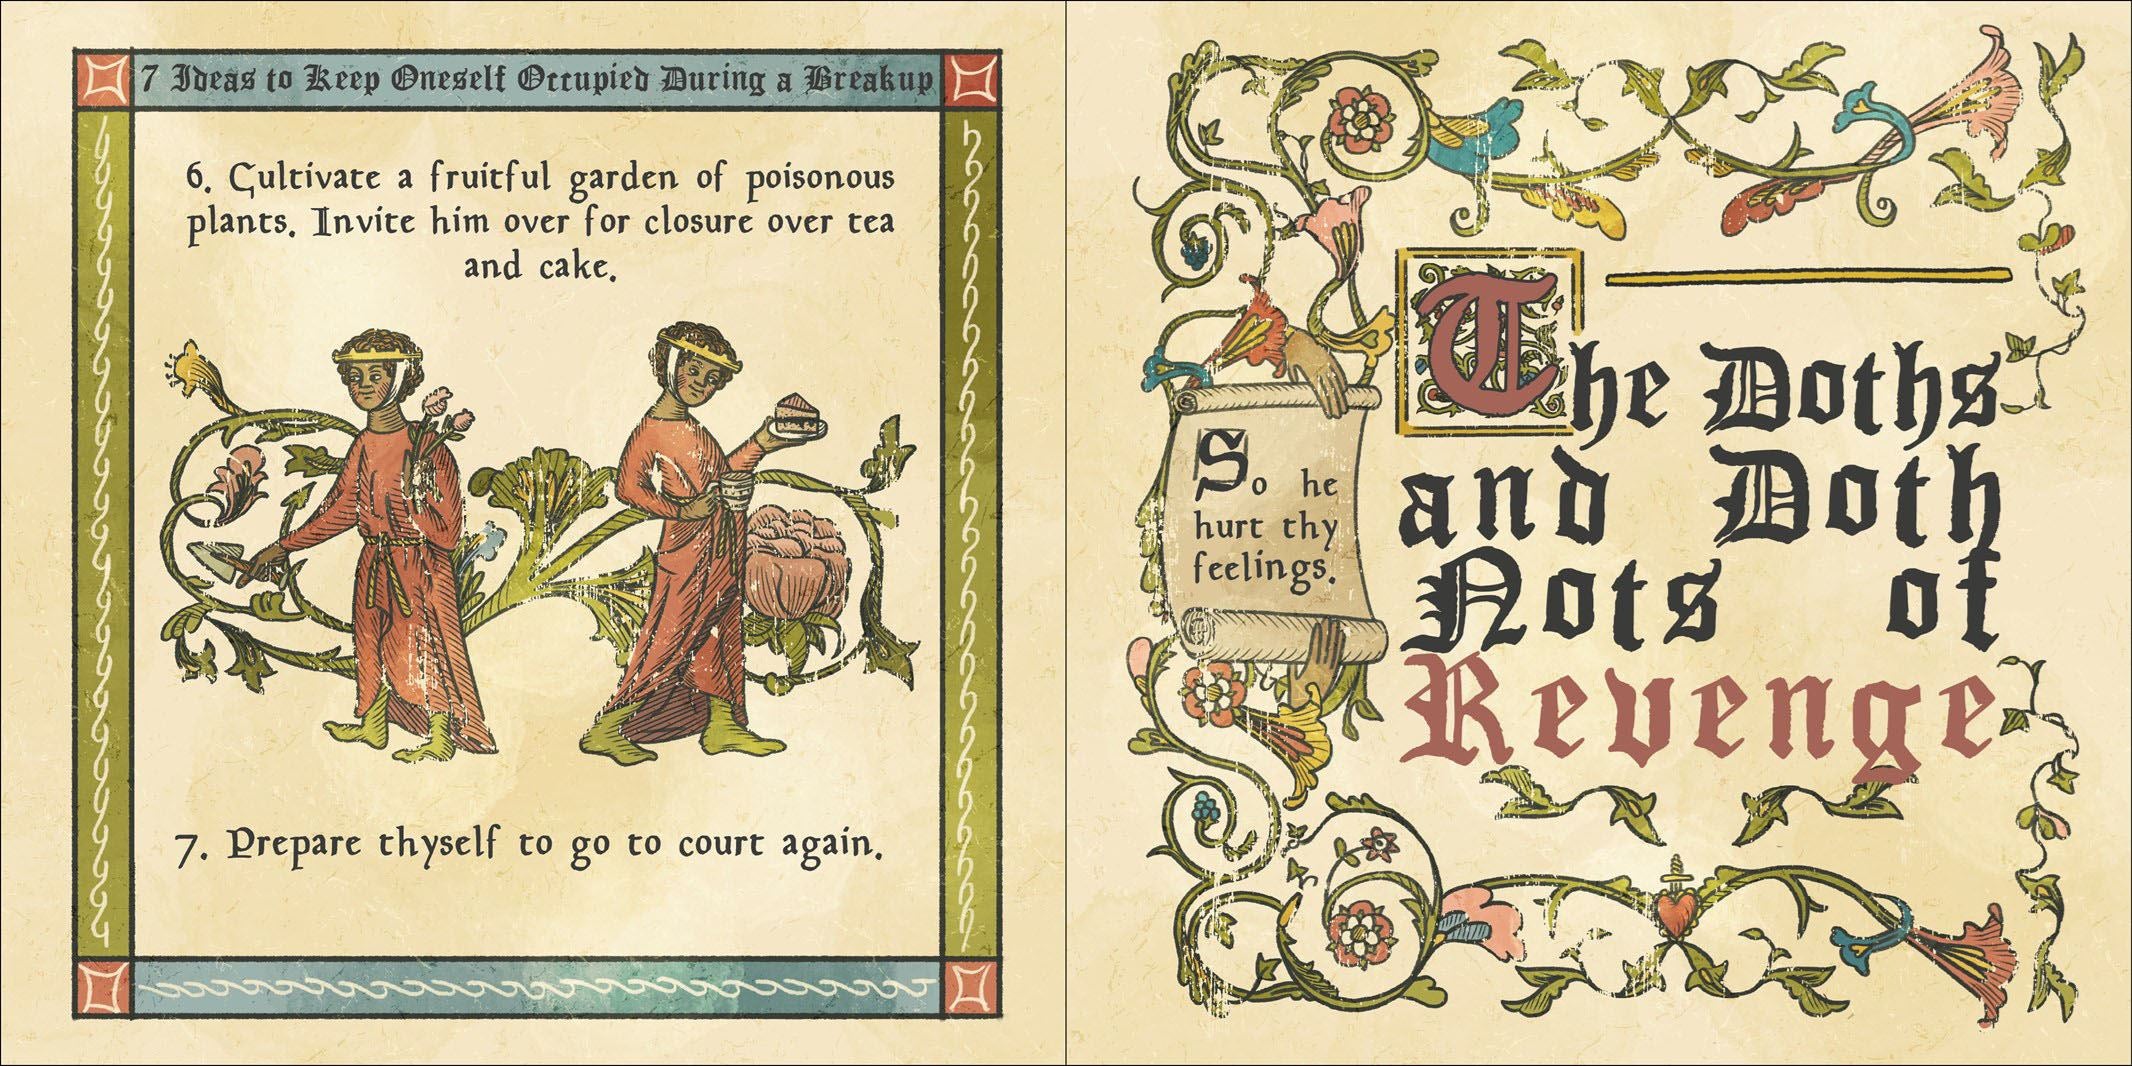 7 Ideas to Keep Oneself Occupied During a Breakup
6. Cultivate a fruitful garden of poisonous
plants. Invite him over for closure over tea
and cake.
7. Prepare thyself to go to court again.
So he
hurt thy
feelings.
The Doths
and Doth
Nots of
Revenge